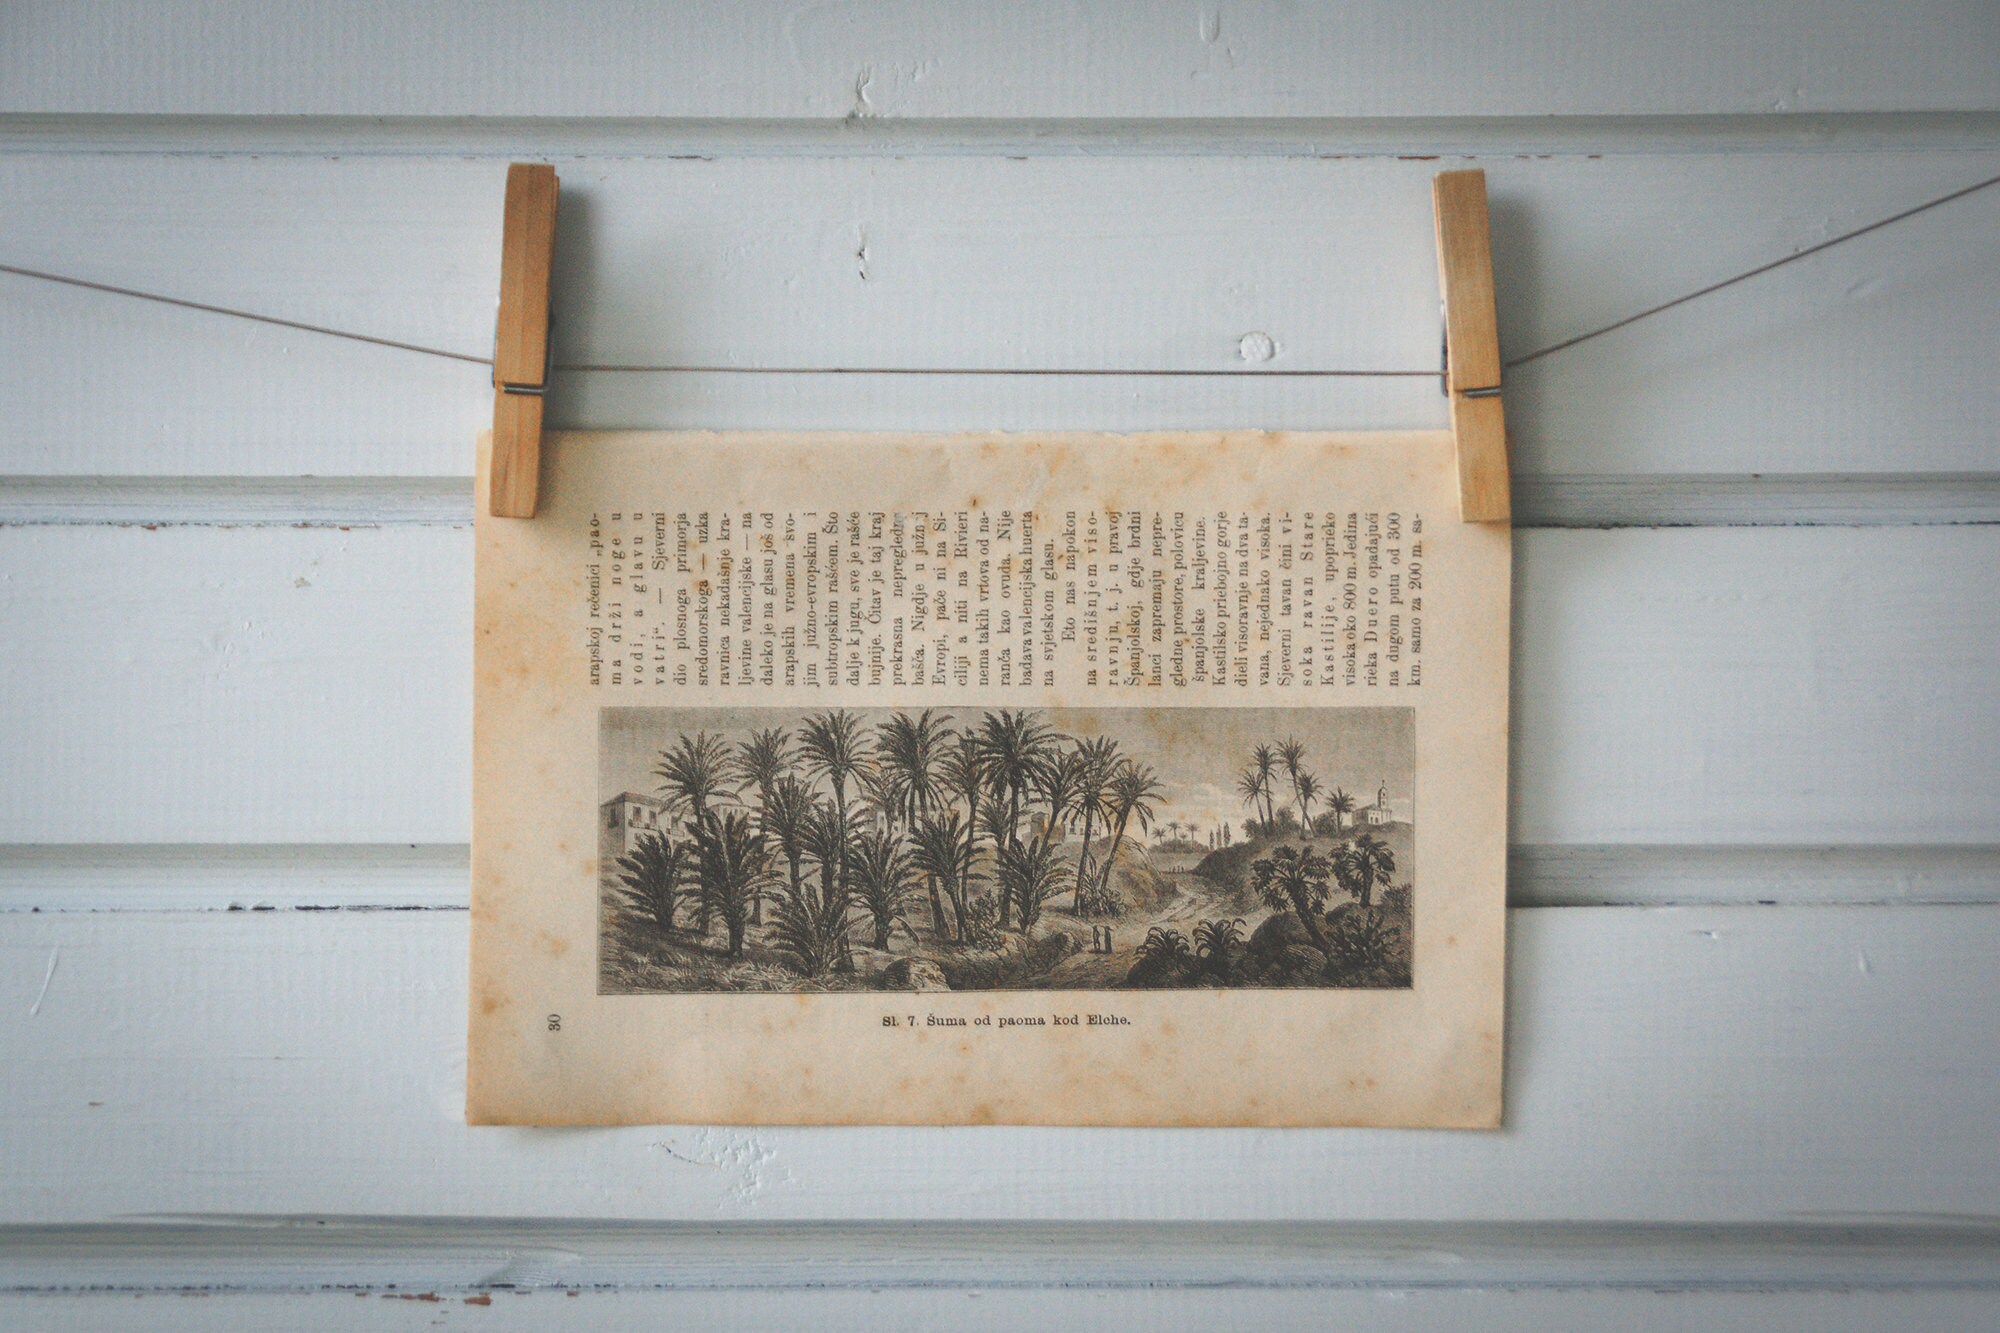 30
arapskoj rečenici „pao-
ma drži noge u
vodi, a glavu u
vatri“. — Sjeverni
dio plosnoga primorja
sredomorskoga — uzka
ravnica nekadašnje kra-
ljevine valencijske — na
daleko je na glasu još od
arapskih vremena svo-
jim južno-evropskim i
subtropskim rašćem. Što
dalje k jugu, sve je rašće
bujnije. Čitav je taj kraj
prekrasna nepregledna
bašća. Nigdje u južnoj
Evropi, pače ni na Si-
ciliji a niti na Rivieri
nema takih vrtova od na-
ranča kao ovuda. Nije
badava valencijska huerta
na svjetskom glasu.
Eto nas napokon
na središnjem viso-
ravnju, t. j. u pravoj
Španjolskoj, gdje brdni
lanci zapremaju nepre-
gledne prostore, polovicu
španjolske kraljevine.
Kastilsko priebojno gorje
dieli visoravnje na dva ta-
vana, nejednako visoka.
Sjeverni tavan čini vi-
soka ravan Stare
Kastilije, uoprieko
visoka oko 800 m. Jedina
rieka Duero opadajući
na dugom putu od 300
km. samo za 200 m. sa-
Sl. 7. Šuma od paoma kod Elche.